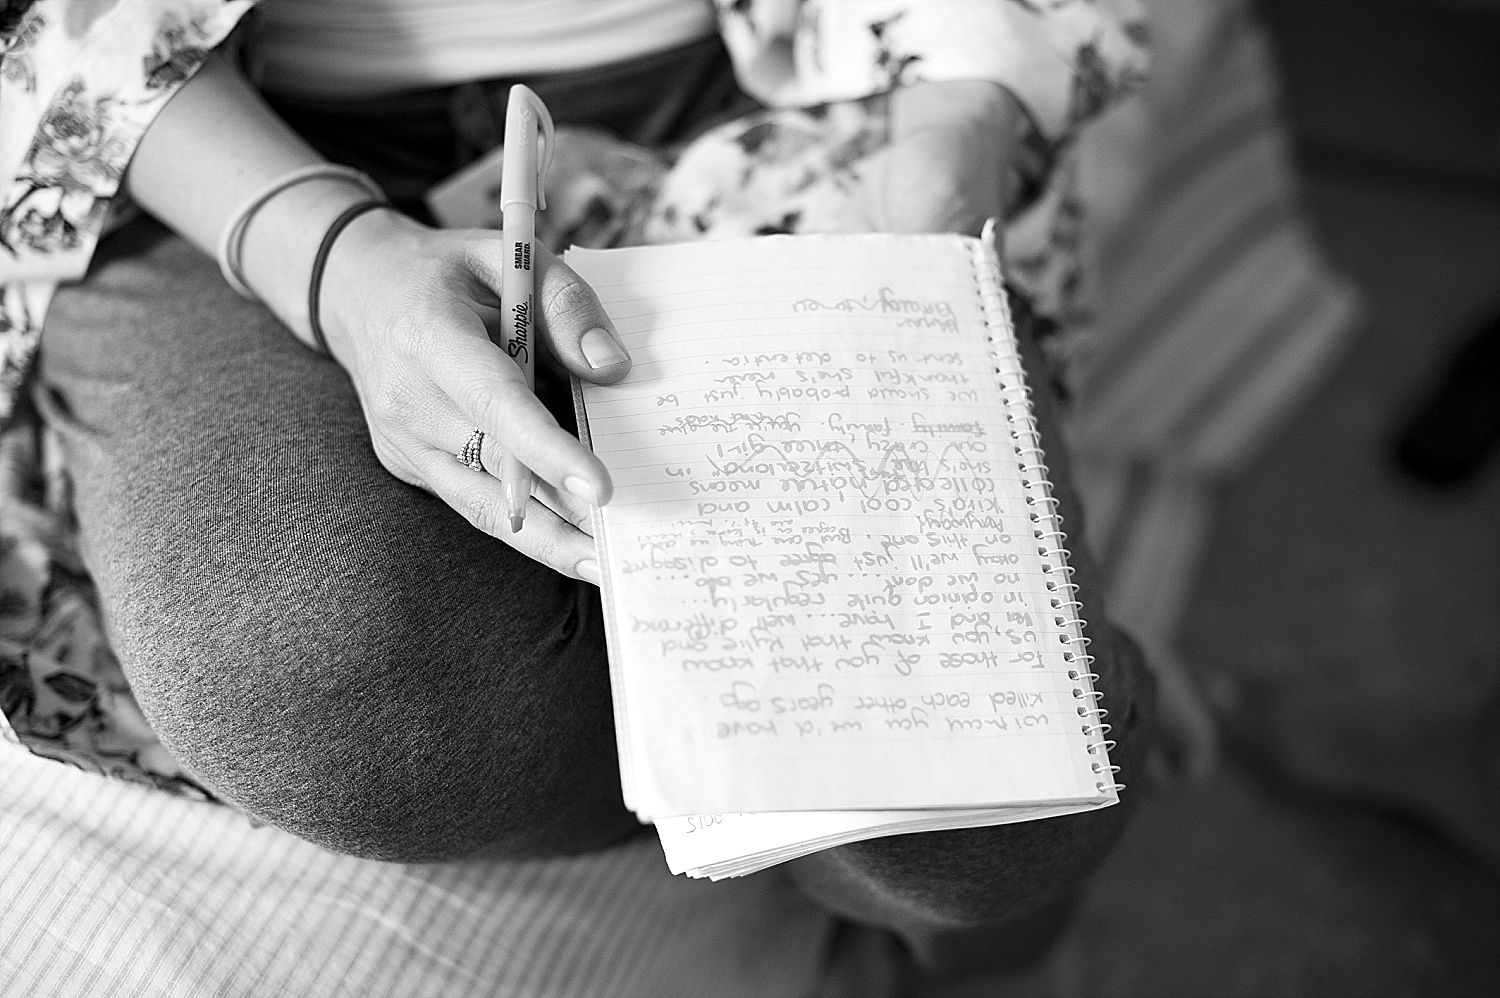 without you we'd have
killed each other years ago.
For those of you that know
us, you know that Kylie and
I have... well differing
in opinion quite regularly...
no we don't.... yes we do....
okay we'll just agree to disagree
on this one. But are
Anyway,
Kira's cool calm and
collected nature means
she's the switzerland in
our crazy, three girl
family. family.
we should probably just be
thankful she's never
sent us to detention.
to you
Sharpie
SMEAR
GUARD.
2015